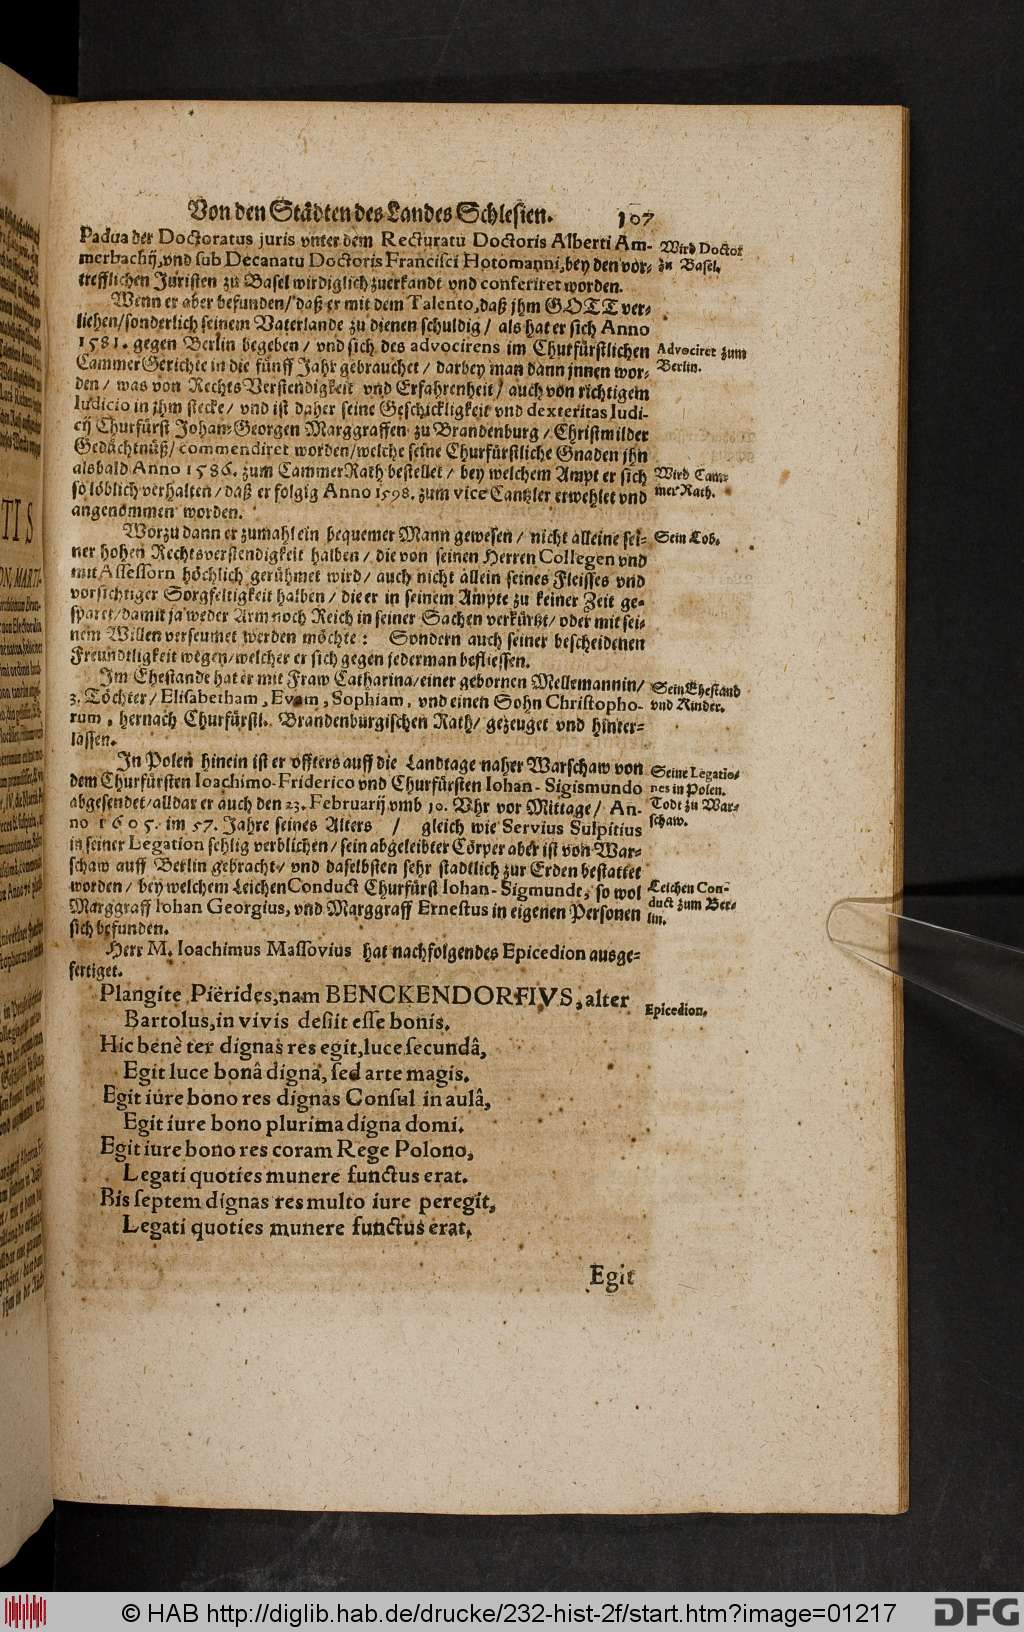 Von den Städten des Landes Schlesien. 107
Padua der Doctoratus juris vnter dem Recturatu Doctoris Alberti Am-
merbachij, vnd sub Decanatu Doctoris Francisci Hotomanni, bey den vor-
trefflichen Juristen zu Basel wirdiglich zuerkandt vnd conferiret worden.
Wird Doctor
zu Basel.
Wenn er aber befunden / daß er mit dem Talento, daß jhm GOTT ver-
liehen / sonderlich seinem Vaterlande zu dienen schuldig / als hat er sich Anno
1581. gegen Berlin begeben / vnd sich des advocirens im Churfürstlichen
CammerGerichte in die fünff Jahr gebrauchet / darbey man dann jnnen wor-
den / was von RechtsVerstendigkeit vnd Erfahrenheit / auch von richtigem
Iudicio in jhm stecke / vnd ist daher seine Geschickligkeit vnd dexteritas Iudi-
cij Churfürst Johan Georgen Marggraffen zu Brandenburg / Christmilder
Gedächtnüß / commendiret worden / welche seine Churfürstliche Gnaden jhn
alsbald Anno 1586. zum CammerRath bestellet / bey welchem Ampt er sich
so löblich verhalten / daß er folgig Anno 1598. zum vice Cantzler erwehlet vnd
angenommen worden.
Advociret zum
Berlin.
Wird Cam-
mer Rath.
Worzu dann er zumahl ein bequemer Mann gewesen / nicht alleine sei-
ner hohen Rechtsverstendigkeit halben / die von seinen Herren Collegen vnd
mit Assessorn höchlich gerühmet wird / auch nicht allein seines Fleisses vnd
vorsichtiger Sorgfeltigkeit halben / die er in seinem Ampte zu keiner Zeit ge-
sparet / damit ja weder Arm noch Reich in seiner Sachen verkürtzt / oder mit sei-
nem Willen verseumet werden möchte: Sondern auch seiner bescheidenen
Freundtligkeit wegen / welcher er sich gegen jederman beflissen.
Sein Lob.
Im Ehestande hat er mit Fraw Catharina / einer gebornen Mellemannin /
3. Töchter / Elisabetham, Evam, Sophiam, vnd einen Sohn Christopho-
rum, hernach Churfürstl. Brandenburgischen Rath / gezeuget vnd hinter-
lassen.
Sein Ehestand
vnd Kinder.
In Polen hinein ist er offters auff die Landtage naher Warschaw von
dem Churfürsten Ioachimo-Friderico vnd Churfürsten Iohan-Sigismundo
abgesendet / alldar er auch den 23. Februarij vmb 10. Vhr vor Mittage / An-
no 1605. im 57. Jahre seines Alters / gleich wie Servius Sulpitius
in seiner Legation sehlig verblichen / sein abgeleibter Cörper aber ist von War-
schaw auff Berlin gebracht / vnd daselbsten sehr stadtlich zur Erden bestattet
worden / bey welchem LeichenConduct Churfürst Iohan-Sigmundt, so wol
Marggraff Iohan Georgius, vnd Marggraff Ernestus in eigenen Personen
sich befunden.
Seine Legatio-
nes in Polen.
Todt zu War-
schaw.
Leichen Con-
duct zum Ber-
lin.
Herr M. Ioachimus Massovius hat nachfolgendes Epicedion ausge-
fertiget.
Plangite Piërides, nam BENCKENDORFIVS, alter
Bartolus, in vivis desiit esse bonis.
Hic benè ter dignas res egit, luce secundâ,
Egit luce bonâ digna, sed arte magis.
Egit iure bono res dignas Consul in aulâ,
Egit iure bono plurima digna domi.
Egit iure bono res coram Rege Polono,
Legati quoties munere functus erat.
Bis septem dignas res multo iure peregit,
Legati quoties munere functus erat.
Epicedion.
Egit
© HAB http://diglib.hab.de/drucke/232-hist-2f/start.htm?image=01217
DFG